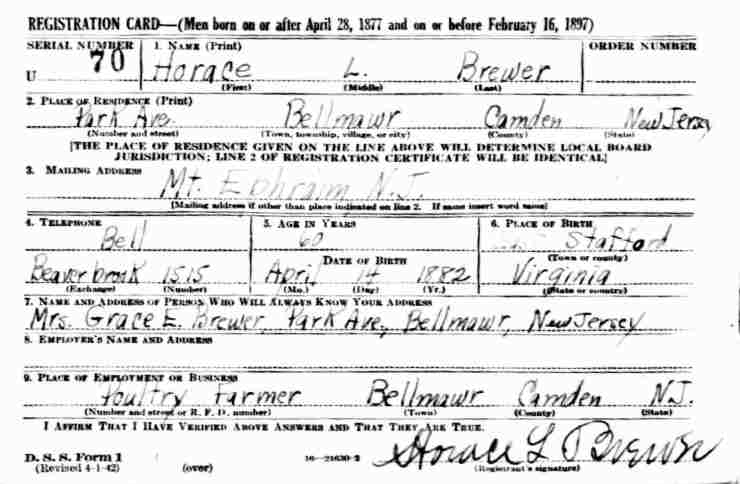 REGISTRATION CARD—(Men born on or after April 28, 1877 and on or before February 16, 1897)
SERIAL NUMBER 1. NAME (Print) ORDER NUMBER
U 70 Horace L. Brewer
(First) (Middle) (Last)
2. PLACE OF RESIDENCE (Print)
Park Ave. Bellmawr Camden New Jersey
(Number and street) (Town, township, village, or city) (County) (State)
[THE PLACE OF RESIDENCE GIVEN ON THE LINE ABOVE WILL DETERMINE LOCAL BOARD
JURISDICTION; LINE 2 OF REGISTRATION CERTIFICATE WILL BE IDENTICAL]
3. MAILING ADDRESS
Mt. Ephraim N.J.
[Mailing address if other than place indicated on line 2. If same insert word same]
4. TELEPHONE 5. AGE IN YEARS 6. PLACE OF BIRTH
Bell 60 Stafford
DATE OF BIRTH (Town or county)
Beaverbrook 1515 April 14 1882 Virginia
(Exchange) (Number) (Mo.) (Day) (Yr.) (State or country)
7. NAME AND ADDRESS OF PERSON WHO WILL ALWAYS KNOW YOUR ADDRESS
Mrs. Grace E. Brewer, Park Ave., Bellmawr, New Jersey
8. EMPLOYER'S NAME AND ADDRESS
9. PLACE OF EMPLOYMENT OR BUSINESS
Poultry Farmer Bellmawr Camden N.J.
(Number and street or R. F. D. number) (Town) (County) (State)
I AFFIRM THAT I HAVE VERIFIED ABOVE ANSWERS AND THAT THEY ARE TRUE.
D. S. S. Form 1
(Revised 4-1-42) (over) 16—21630-2 Horace L Brewer
(Registrant's signature)